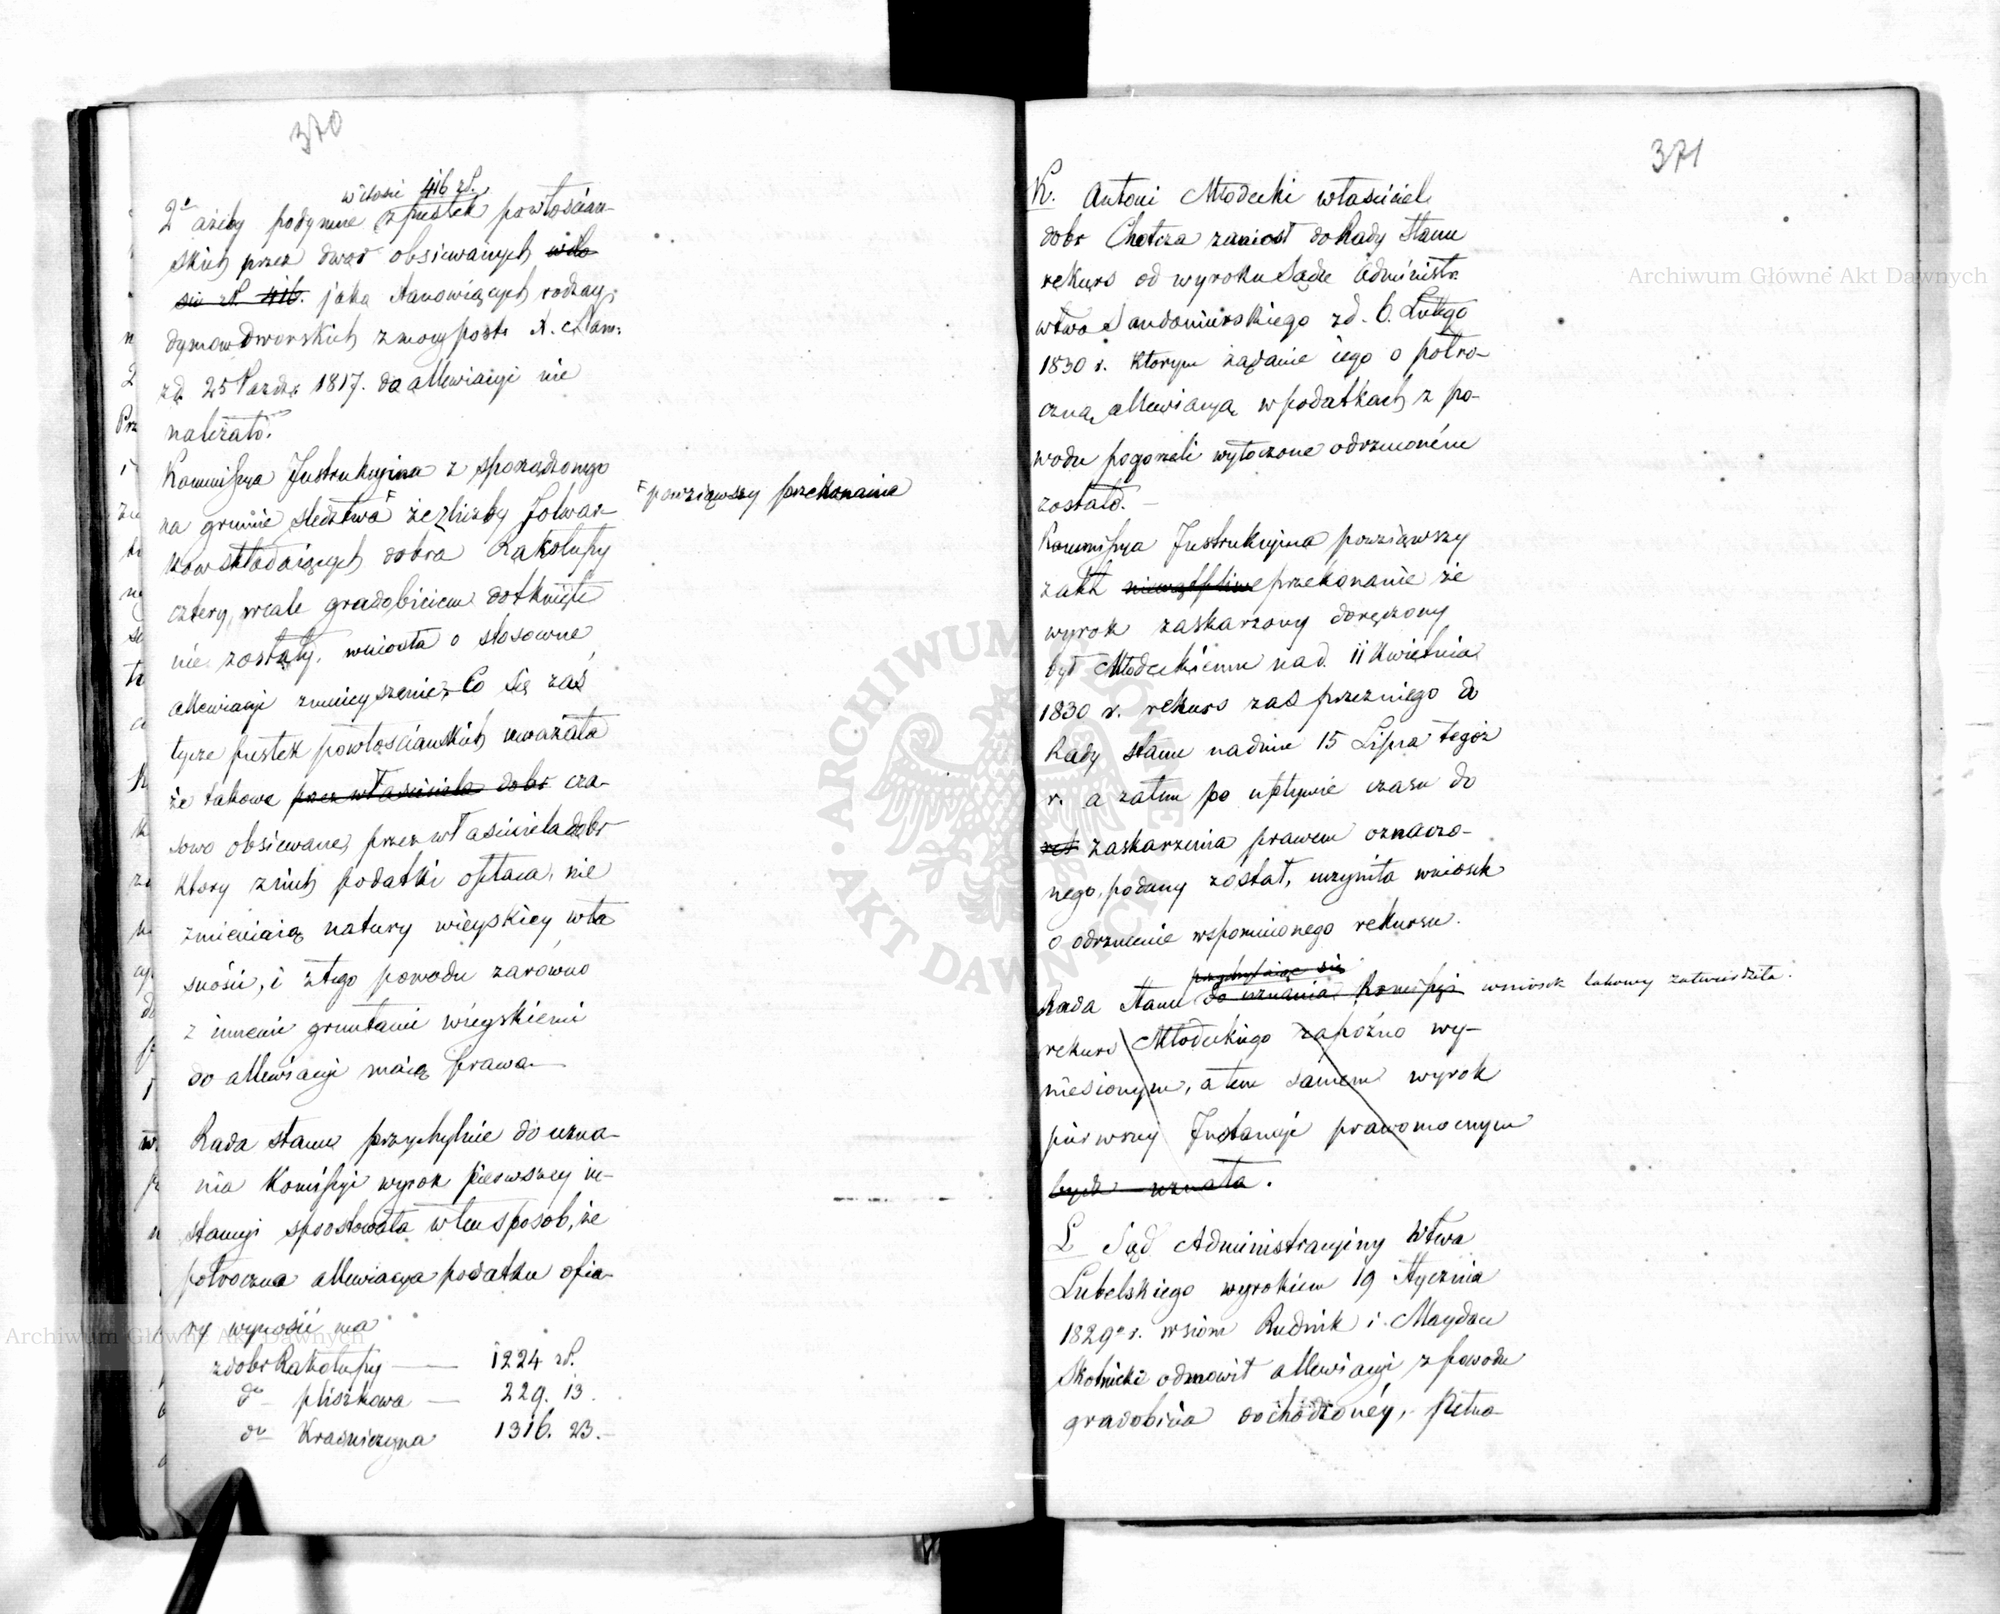 370
w ilości 416 zł.
2e ażeby podymne z pustek powłościań-
skich przez dwór obsiewanych wilo
ści zł. 416. jako stanowiących rodzay
dymow Dworskich z mocy post. X. Nam:
z d. 25 Pazdz. 1817. do allewiacyi nie
należało.
Kommissya Instrukcyjna z sporządzonego
na gruncie śledztwa F że z liczby folwar-
F powziąwszy przekonanie
kow składaiących dobra Rakołupy
cztery, wcale gradobiciem dotknięte
nie zostały, wniosła o stosowne
allewiacyi zmnieyszenie. Co się zaś
tycze pustek powłosciańskich uważała
że takowe przez właściciela dobr cza-
sowo obsiewane, przez właściciela dobr
ktory z nich podatki opłaca, nie
zmieniaią natury wieyskiey wła
sności, i z tego powodu zarówno
z innemi gruntami wieyskiemi
do allewiacyi maią prawa.—
Rada Stanu przychylnie do uzna-
nia Komissyi wyrok pierwszey in-
stancyi sprostowała w ten sposób, że
połroczna allewiacya podatku ofia-
ry wynosić ma
z dobr Rakołupy — 1224 zł.
do — pliszkowa — 229. 13.
do — Kraśniczyna 1316. 23.—
371
K. Antoni Młodecki właściciel
dobr Chotcza zaniosł do Rady Stanu
rekurs od wyroku Sądu Administr.
wtwa Sandomierskiego z d. 6. Lutego
1830 r. ktorym żądanie iego o połro-
czną allewiacyą w podatkach z po-
wodu pogorzeli wytoczone odrzuconém
zostało. —
Kommissya Instrukcyjna powziąwszy
z akt niewątpliwe przekonanie że
wyrok zaskarzony doręczony
był Młodeckiemu na d. 11 Kwietnia
1830 r. rekurs zaś przez niego do
Rady Stanu na dniu 15 Lipca tegoż
r. a zatem po upływie czasu do
zaskarzenia prawem oznaczo-
nego, podany został, uczyniła wniosek
o odrzucenie wspomnionego rekursu.
przychylaiąc się
Rada Stanu do uznania Komissyi wniosek takowy zatwierdziła.
rekurs Młodeckiego zapóźno wy-
niesionym, a tem samem wyrok
pierwszey Instancyi prawomocnym
bydź uznała.
L Sąd Administracyiny Wtwa
Lubelskiego wyrokiem 19 Stycznia
1829o r. wsiom Rudnik i Maydan
Skolnicki odmowił allewiacyi z powodu
gradobicia dochodzonéy, Pełno-
Archiwum Główne Akt Dawnych
Archiwum Główne Akt Dawnych
ARCHIWUM GŁÓWNE · AKT DAWNYCH ·